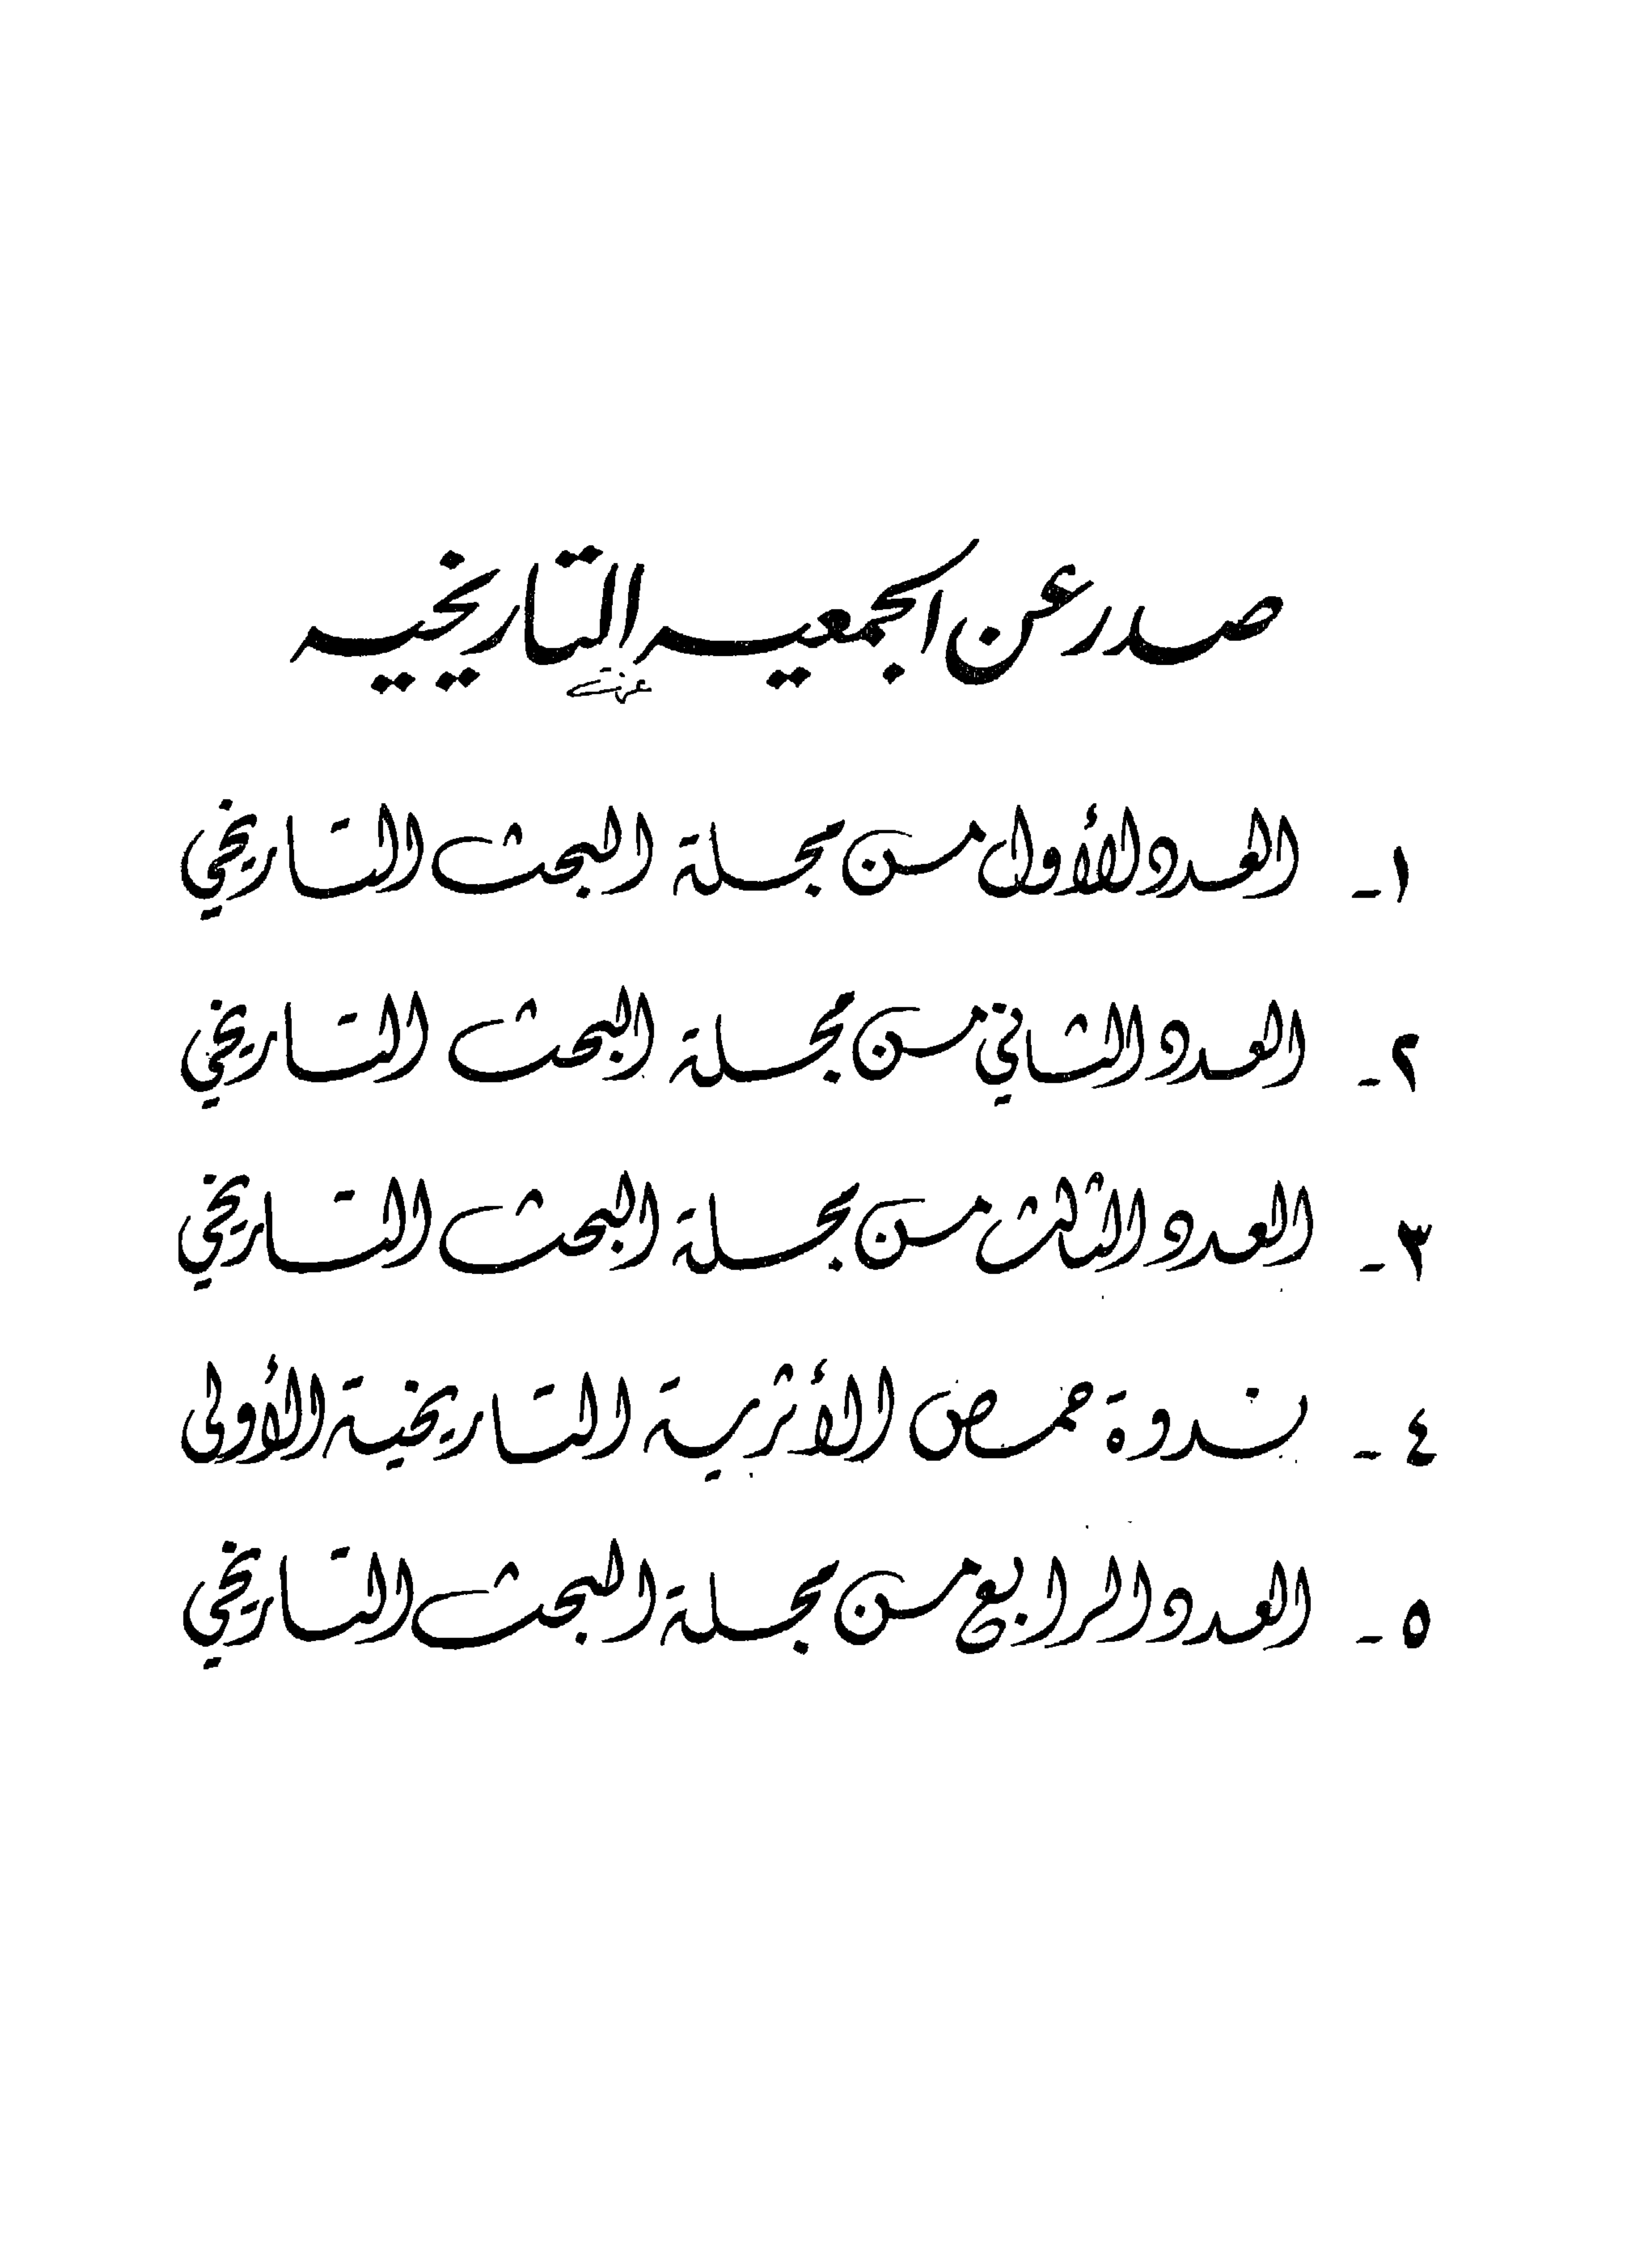 صدر عن الجمعيه التاريخيه
١- العدد الأول من مجلة البحث التاريخي
٢- العدد الثاني من مجلة البحث التاريخي
٣- العدد الثالث من مجلة البحث التاريخي
٤- ندوة حمص الأثرية التاريخية الأولى
٥- العدد الرابع من مجلة البحث التاريخي